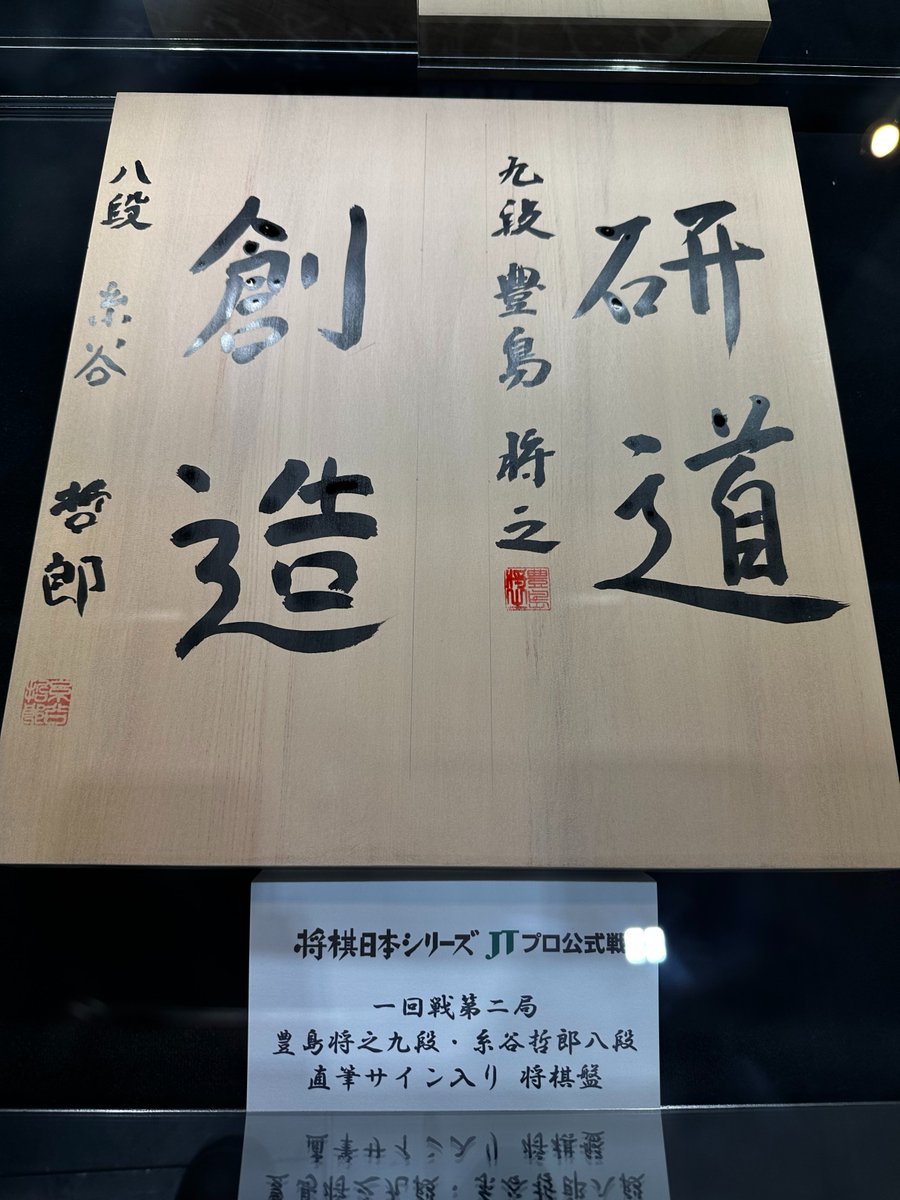 研道
九段 豊島 将之
豊島
将之
創造
八段 糸谷 哲郎
糸谷
哲郎
将棋日本シリーズ JTプロ公式戦
一回戦第二局
豊島将之九段・糸谷哲郎八段
直筆サイン入り 将棋盤